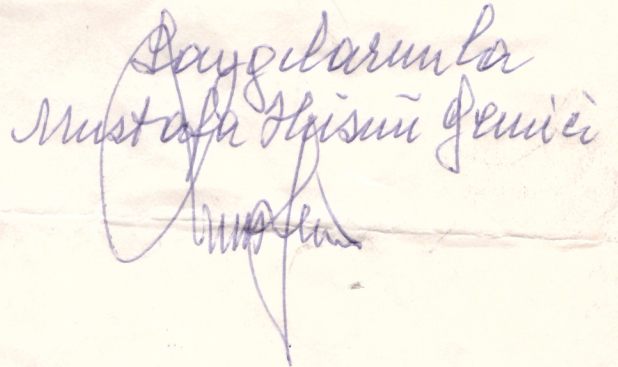 Saygılarımla
Mustafa Hüsnü Gemici